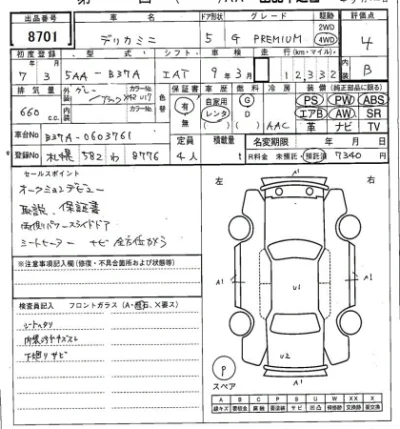 出品番号 車名 ドア形状 グレード 駆動 評価点
8701 デリカミニ 5 G PREMIUM 2WD 4WD 4
初度登録 型式 シフト 車検 走行(km・マイル) 内装
7年3月 5AA-B37A IAT 9年3月 12,332 B
排気量 外装色 グレー ブラック カラーNo. 色替 保証書 車歴 燃料 冷房 装備(純正部品に限る)
660 cc. 内装色 カラーNo. 有 無 自家用 レンタ G D AAC PS PW ABS
エアB AW SR
革 ナビ TV
車台No B37A-0603761
定員 積載量 名変期限 年 月 日
登録No 札幌 582 わ 8776 4人 t R料金 未預託・預託済 7340円
セールスポイント
オークションデビュー
取説、保証書
両側パワースライドドア
シートヒーター ナビ 全方位カメラ
※注意事項記入欄(修復・不具合箇所および状態等)
検査員記入 フロントガラス(A・飛石、X要ス)
シートスレ
内装キズ
下廻りサビ
左 右
A1
U1
A1
A1
U2
A1
P
スペア
A B C P S U W X XX
線キズ 要板金 腐食 要塗装 サビ 凹凸 補修跡 要交換 交換跡